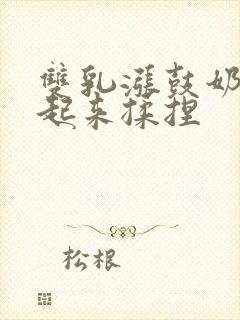 雙乳漲鼓奶
起来揉捏
松根